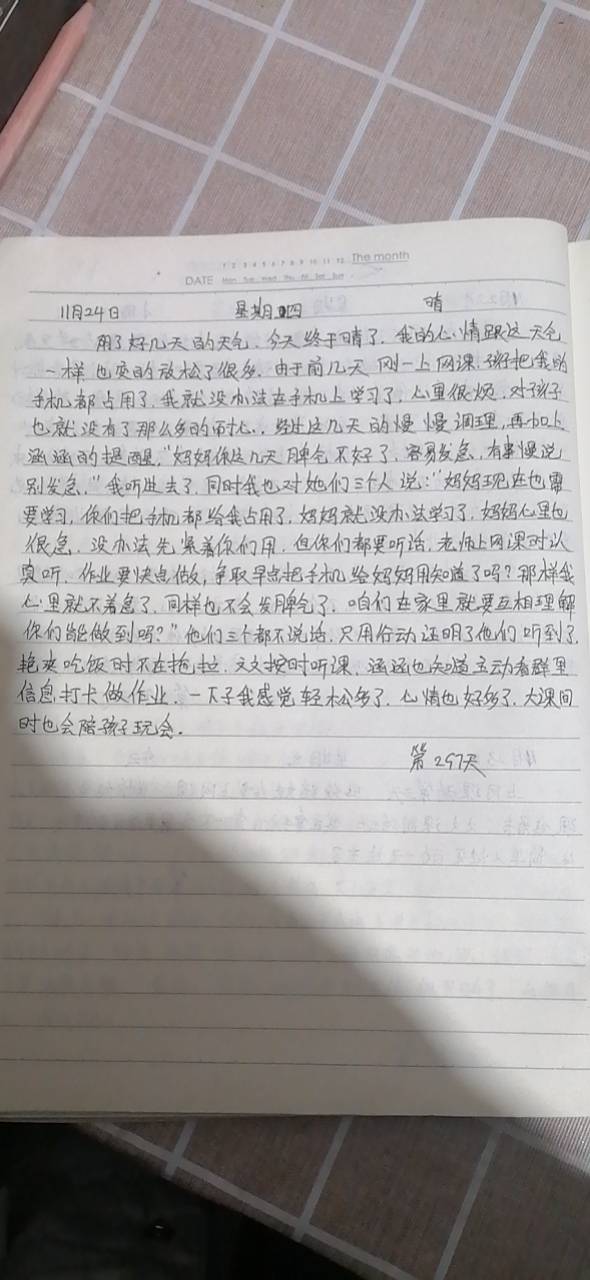 1 2 3 4 5 6 7 8 9 10 11 12 The month
DATE Mon Tue Wed Thu Fri Sat Sun
11月24日 星期四 晴
阴了好几天的天气，今天终于晴了，我的心情跟这天气
一样也变的放松了很多，由于前几天刚一上网课，孩子把我的
手机都占用了，我就没办法在手机上学习了，心里很烦，对孩子
也就没有了那么多的耐心，经过这几天的慢慢调理，再加上
涵涵的提醒，"妈妈你这几天脾气不好了，容易发急，有事慢说
别发急，"我听进去了，同时我也对她们三个人说："妈妈现在也需
要学习，你们把手机都给我占用了，妈妈就没办法学习了，妈妈心里也
很急，没办法先紧着你们用，但你们都要听话，老师上网课时认
真听，作业要快点做，争取早点把手机给妈妈用知道了吗？那样我
心里就不着急了，同样也不会发脾气了，咱们在家里就要互相理解
你们能做到吗？"他们三个都不说话，只用行动证明了他们听到了，
起来吃饭时不在拖拉，文文按时听课，涵涵也知道主动看群里
信息打卡做作业，一下子我感觉轻松多了，心情也好多了，大课间
时也会陪孩子玩会．
第297天